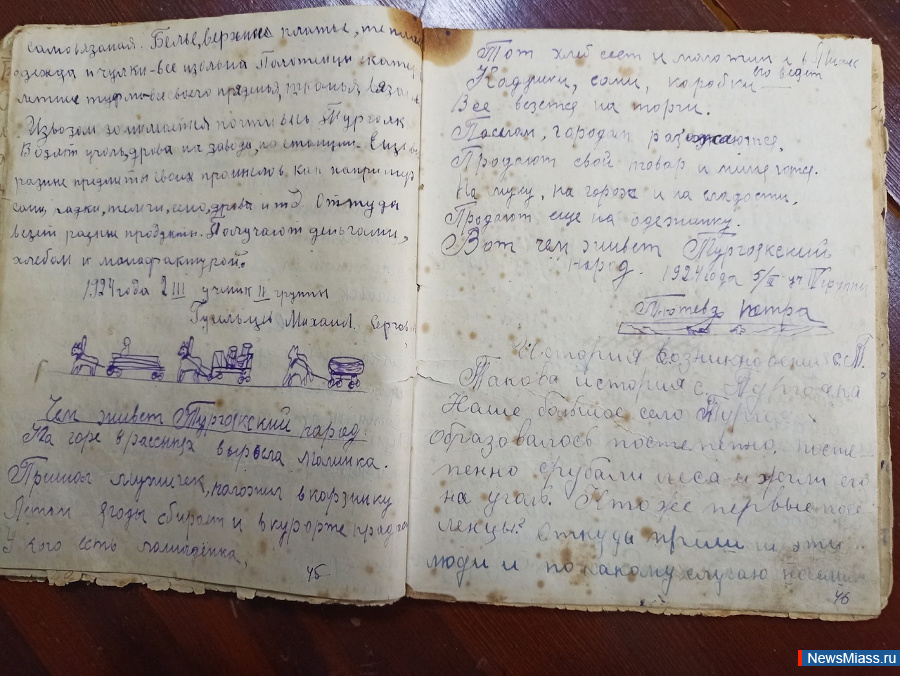 самовязаная. Белье, верхние платье, теплая
одежда и чулки-все из своего
летние своего вязания
Извозом занимается почти весь Тургояк
Возят уголь, дрова на завода, на станции. Еще
разные предметы своих промыслов как например
сани, кадки, телеги, сено, дрова и т.д. Оттуда
везут разные продукты. Получают деньгами,
хлебом и мануфактурой.
1924 года 2 III ученик II группы
Михаил. Серг
Чем живет Тургоякский народ.
На горе выросла малинка.
Пришол мужичек, наложил в корзинку
Летом ягоды сбирает и в курорте
У кого есть полиаденка,
45
Тот хлеб сеет и молотит и в
Кадушки, сани, коробки
Все везется на торги.
Посмотр, городам разъежаются,
Продают свой товар и
На муку, на горох и на сладости,
Продают еще на одежинку.
Вот чем живет Тургоякский
народ. 1924 года 5/III уч группы
Петра
История возникновения с. Т.
Такова история с. Тургояка
Наше большое село Тургояк
образовалось постепенно, посте
пенно срубали леса и жгли его
на уголь. Кто же первые посе
ленцы? Откуда пришли эти
люди и по какому случаю
46
NewsMiass.ru